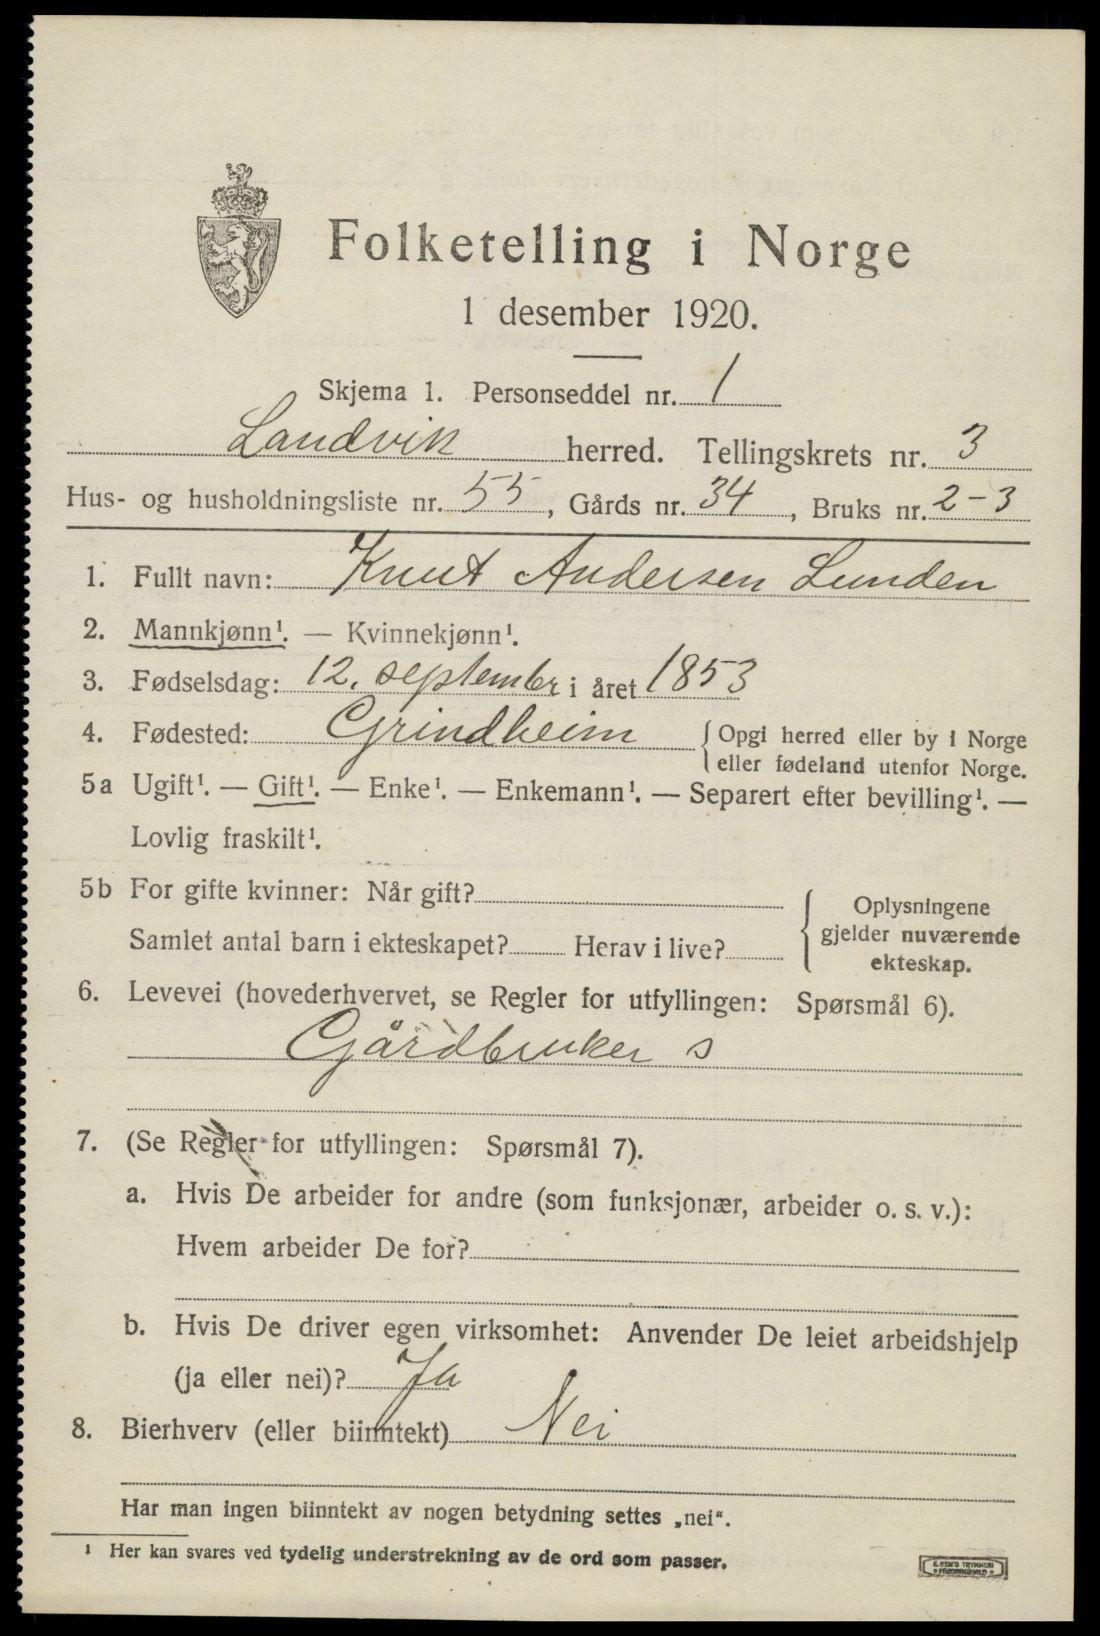 Folketelling i Norge
1 desember 1920.
Skjema 1. Personseddel nr. 1
Landvik herred. Tellingskrets nr. 3
Hus- og husholdningsliste nr. 55, Gårds nr. 34, Bruks nr. 2-3
1. Fullt navn: Knut Andersen Lunden
2. Mannkjønn¹. — Kvinnekjønn¹.
3. Fødselsdag: 12. septembr i året 1853
4. Fødested: Grindheim
Opgi herred eller by i Norge
eller fødeland utenfor Norge.
5a Ugift¹. — Gift¹. — Enke¹. — Enkemann¹. — Separert efter bevilling¹. —
Lovlig fraskilt¹.
5b For gifte kvinner: Når gift?
Samlet antal barn i ekteskapet? Herav i live?
Oplysningene
gjelder nuværende
ekteskap.
6. Levevei (hovederhvervet, se Regler for utfyllingen: Spørsmål 6).
Gårdbruker s
7. (Se Regler for utfyllingen: Spørsmål 7).
a. Hvis De arbeider for andre (som funksjonær, arbeider o. s. v.):
Hvem arbeider De for?
b. Hvis De driver egen virksomhet: Anvender De leiet arbeidshjelp
(ja eller nei)? Ja
8. Bierhverv (eller biinntekt) Nei
Har man ingen biinntekt av nogen betydning settes „nei".
¹ Her kan svares ved tydelig understrekning av de ord som passer.